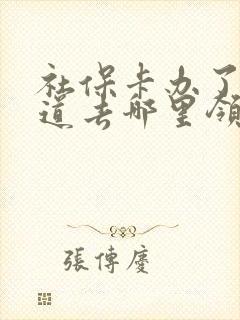 社保卡办了
道去哪里领
張傳慶